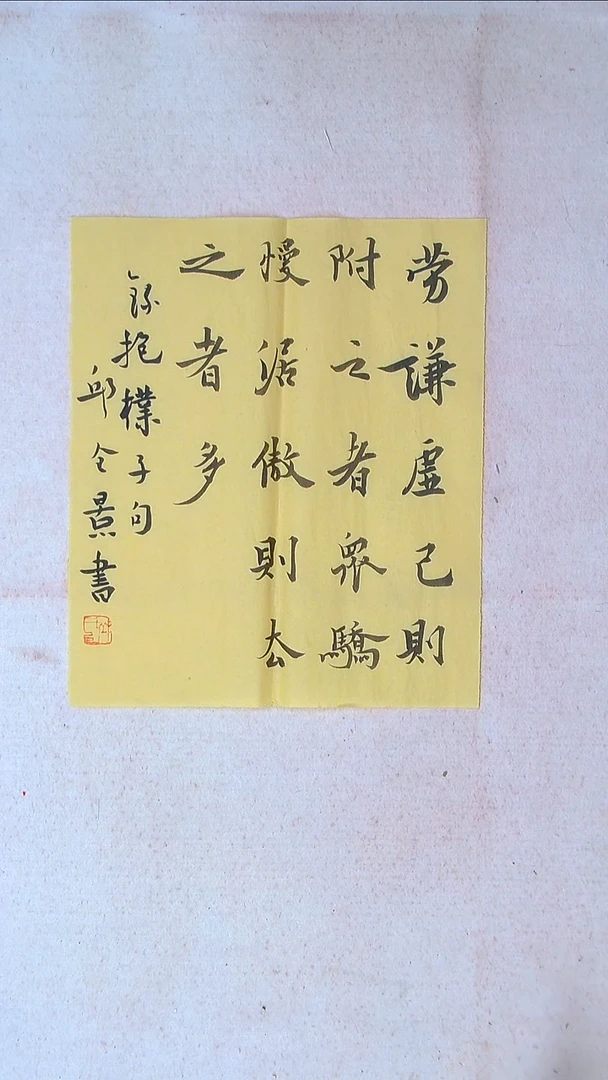 劳謙虛己則
附之者眾驕
慢倨傲則去
之者多
錄抱樸子句
邱仝景書